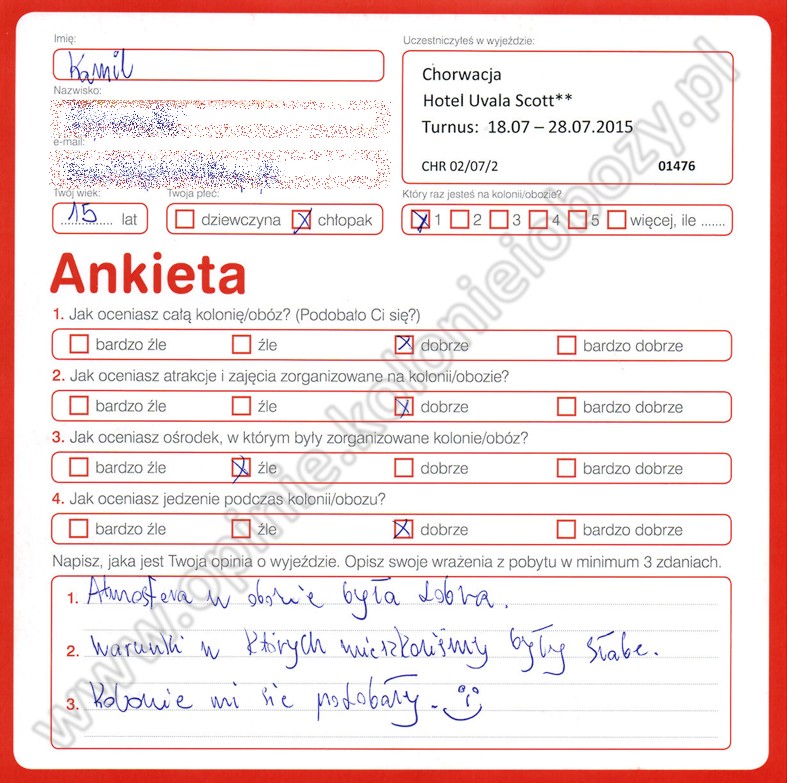 Imię:
Kamil
Uczestniczyłeś w wyjeździe:
Chorwacja
Hotel Uvala Scott**
Turnus: 18.07 – 28.07.2015
CHR 02/07/2 01476
Nazwisko:
e-mail:
Twój wiek:
15 lat
Twoja płeć:
dziewczyna chłopak
Który raz jesteś na kolonii/obozie?
1 2 3 4 5 więcej, ile .......
Ankieta
1. Jak oceniasz całą kolonię/obóz? (Podobało Ci się?)
bardzo źle źle dobrze bardzo dobrze
2. Jak oceniasz atrakcje i zajęcia zorganizowane na kolonii/obozie?
bardzo źle źle dobrze bardzo dobrze
3. Jak oceniasz ośrodek, w którym były zorganizowane kolonie/obóz?
bardzo źle źle dobrze bardzo dobrze
4. Jak oceniasz jedzenie podczas kolonii/obozu?
bardzo źle źle dobrze bardzo dobrze
Napisz, jaka jest Twoja opinia o wyjeździe. Opisz swoje wrażenia z pobytu w minimum 3 zdaniach.
1. Atmosfera w obozie była dobra.
2. Warunki w których mieszkaliśmy były słabe.
3. Kolonie mi sie podobały.
www.opinie.kolonieiobozy.pl